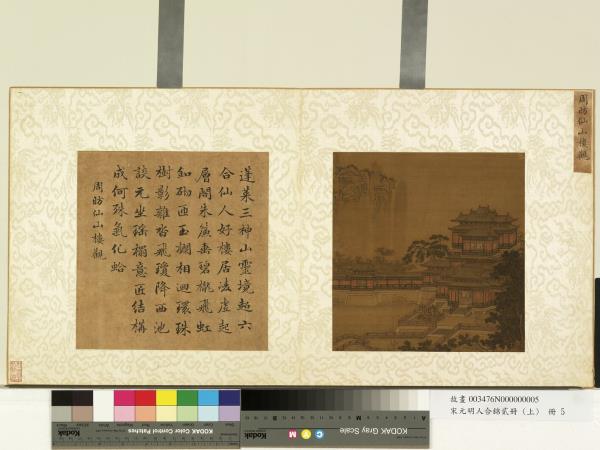 周昉仙山樓觀
蓬萊三神山靈境超六
合仙人好樓居凌虛起
層閣朱簾垂碧檻飛虹
釦砌匝玉欄相迴環珠
樹影離沓飛瓊降西池
談元坐瑤榻意匠結構
成何殊氣化蛤
周昉仙山樓觀
Kodak KODAK Color Control Patches
Kodak KODAK Gray Scale
C Y M
故畫 003476N000000005
宋元明人合錦貳冊（上） 冊 5